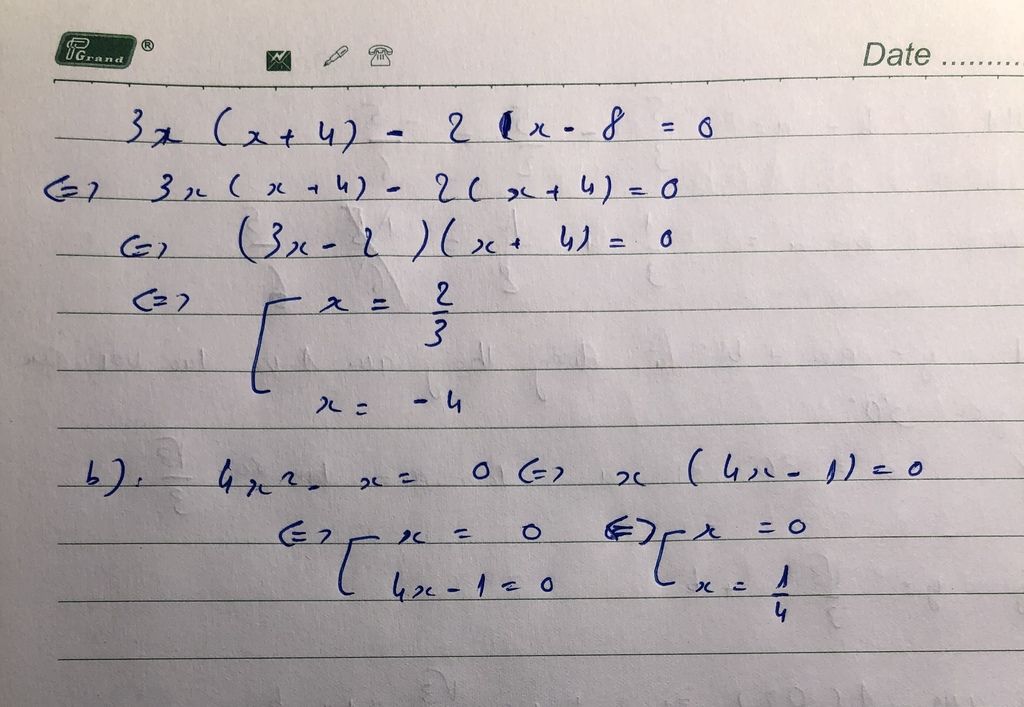 PGrand ® Date ..........
3x (x + 4) - 2x - 8 = 0
<=> 3x (x + 4) - 2(x + 4) = 0
<=> (3x - 2)(x + 4) = 0
<=> [ x = 2/3
x = -4
b). 4x² - x = 0 <=> x (4x - 1) = 0
<=> [ x = 0 <=> [ x = 0
4x - 1 = 0 x = 1/4